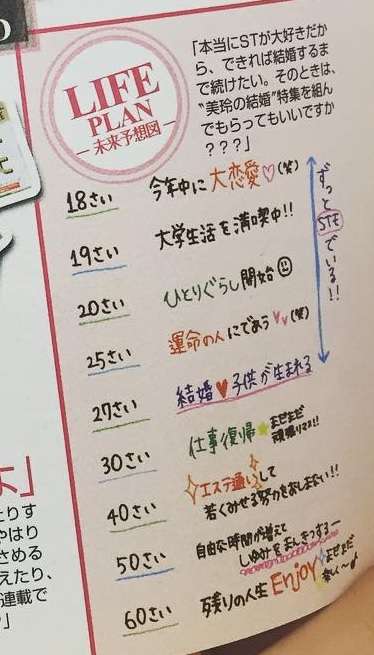 LIFE
PLAN
未来予想図
「本当にSTが大好きだか
ら、できれば結婚するま
で続けたい。そのときは、
"美玲の結婚"特集を組ん
でもらってもいいですか
???」
18さい 今年中に大恋愛♡(笑)
19さい 大学生活を満喫中!!
20さい ひとりぐらし開始☺
25さい 運命の人にであう♡♡(笑)
27さい 結婚♥子供が生まれる
ずっとSTモでいる!!
30さい 仕事復帰★まだまだ
頑張りマス!!
40さい エステ通いして
若くみせる努力をおしまない!!
50さい 自由な時間が増えて
しゅみをまんきつするー
60さい 残りの人生Enjoy まだまだ
楽し〜♪
よ」
たりす
やはり
さめる
えたり、
連載で